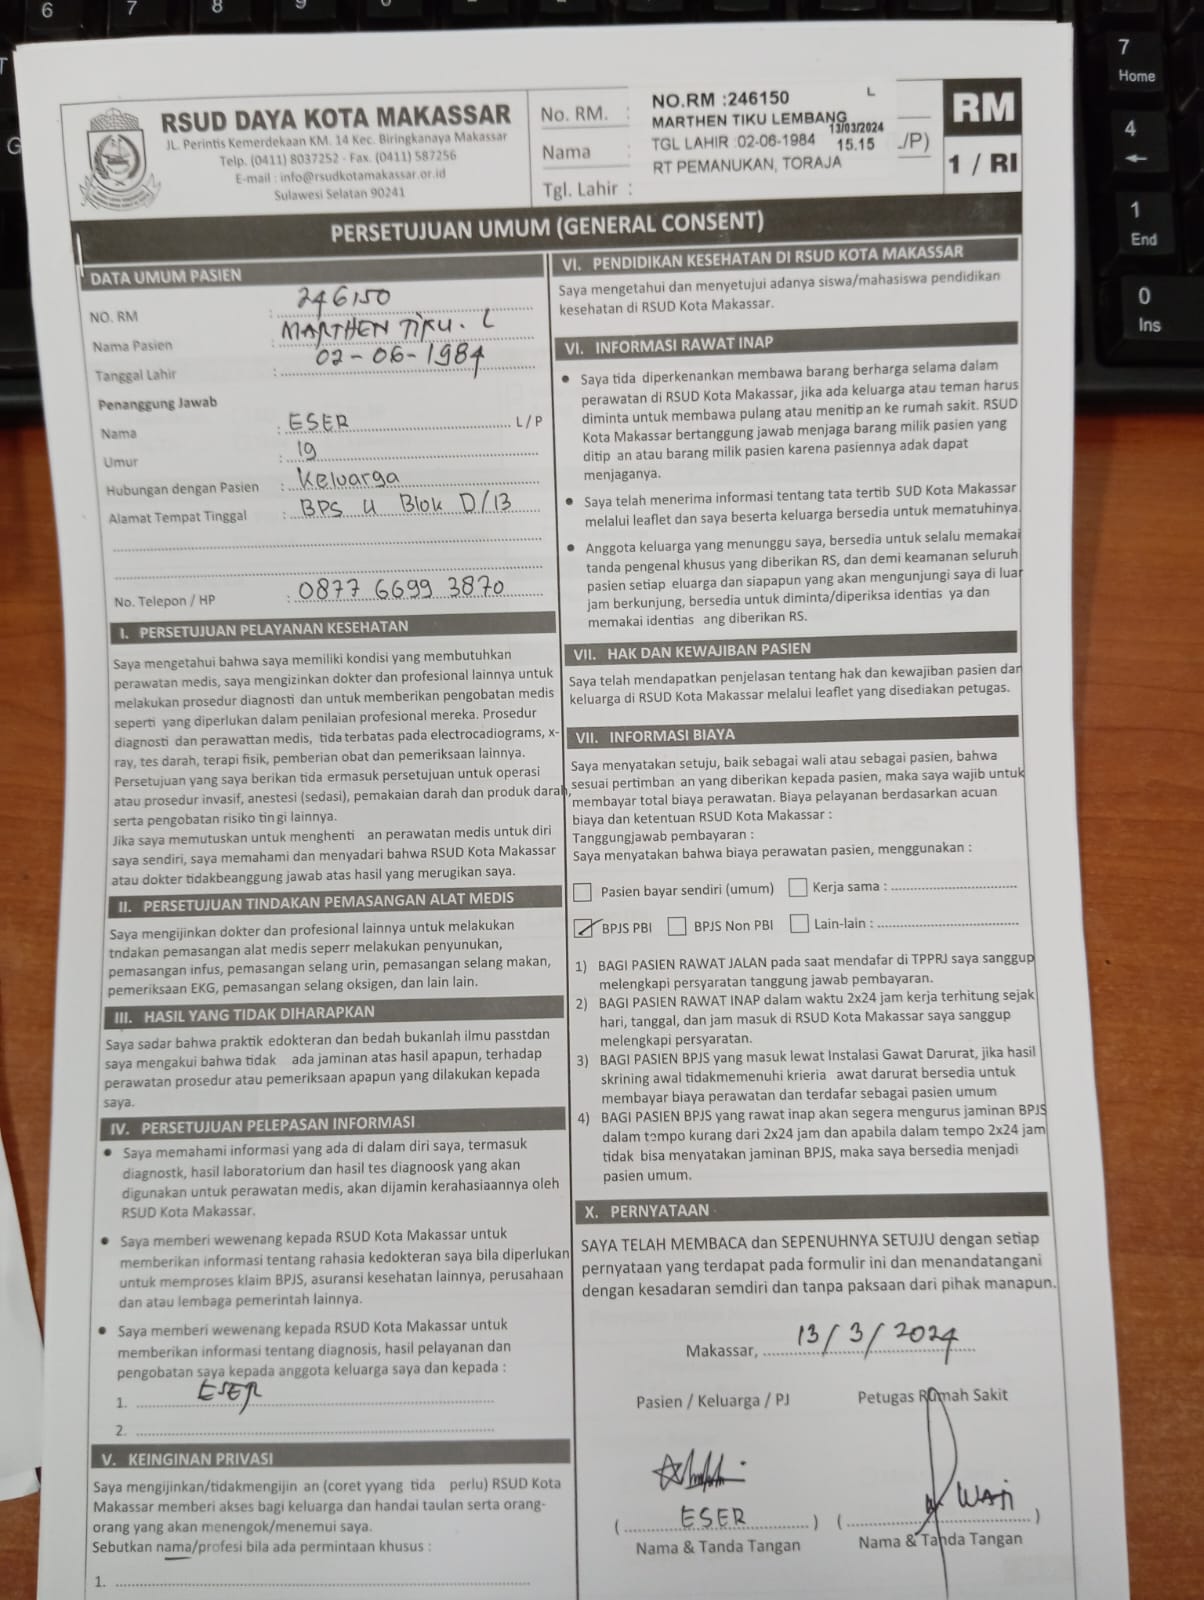 RSUD DAYA KOTA MAKASSAR
JL. Perintis Kemerdekaan KM. 14 Kec. Biringkanaya Makassar
Telp. (0411) 8037252 - Fax. (0411) 587256
E-mail : info@rsudkotamakassar.or.id
Sulawesi Selatan 90241
No. RM. :
Nama :
Tgl. Lahir :
NO.RM :246150 L
MARTHEN TIKU LEMBANG
13/03/2024
TGL LAHIR :02-06-1984 15.15
RT PEMANUKAN, TORAJA
/P)
RM
1 / RI
PERSETUJUAN UMUM (GENERAL CONSENT)
DATA UMUM PASIEN
NO. RM : 246150
Nama Pasien : MARTHEN TIKU. L
Tanggal Lahir : 02-06-1984
Penanggung Jawab
Nama : ESER L / P
Umur : 19
Hubungan dengan Pasien : Keluarga
Alamat Tempat Tinggal : BPS 4 Blok D/13
No. Telepon / HP : 0877 6699 3870
I. PERSETUJUAN PELAYANAN KESEHATAN
Saya mengetahui bahwa saya memiliki kondisi yang membutuhkan
perawatan medis, saya mengizinkan dokter dan profesional lainnya untuk
melakukan prosedur diagnosti dan untuk memberikan pengobatan medis
seperti yang diperlukan dalam penilaian profesional mereka. Prosedur
diagnosti dan perawattan medis, tida terbatas pada electrocadiograms, x-
ray, tes darah, terapi fisik, pemberian obat dan pemeriksaan lainnya.
Persetujuan yang saya berikan tida ermasuk persetujuan untuk operasi
atau prosedur invasif, anestesi (sedasi), pemakaian darah dan produk darah,
serta pengobatan risiko tin gi lainnya.
Jika saya memutuskan untuk menghenti an perawatan medis untuk diri
saya sendiri, saya memahami dan menyadari bahwa RSUD Kota Makassar
atau dokter tidakbeanggung jawab atas hasil yang merugikan saya.
II. PERSETUJUAN TINDAKAN PEMASANGAN ALAT MEDIS
Saya mengijinkan dokter dan profesional lainnya untuk melakukan
tndakan pemasangan alat medis seperr melakukan penyunukan,
pemasangan infus, pemasangan selang urin, pemasangan selang makan,
pemeriksaan EKG, pemasangan selang oksigen, dan lain lain.
III. HASIL YANG TIDAK DIHARAPKAN
Saya sadar bahwa praktik edokteran dan bedah bukanlah ilmu passtdan
saya mengakui bahwa tidak ada jaminan atas hasil apapun, terhadap
perawatan prosedur atau pemeriksaan apapun yang dilakukan kepada
saya.
IV. PERSETUJUAN PELEPASAN INFORMASI
• Saya memahami informasi yang ada di dalam diri saya, termasuk
diagnostk, hasil laboratorium dan hasil tes diagnoosk yang akan
digunakan untuk perawatan medis, akan dijamin kerahasiaannya oleh
RSUD Kota Makassar.
• Saya memberi wewenang kepada RSUD Kota Makassar untuk
memberikan informasi tentang rahasia kedokteran saya bila diperlukan
untuk memproses klaim BPJS, asuransi kesehatan lainnya, perusahaan
dan atau lembaga pemerintah lainnya.
• Saya memberi wewenang kepada RSUD Kota Makassar untuk
memberikan informasi tentang diagnosis, hasil pelayanan dan
pengobatan saya kepada anggota keluarga saya dan kepada :
1. ESER
2.
V. KEINGINAN PRIVASI
Saya mengijinkan/tidakmengijin an (coret yyang tida perlu) RSUD Kota
Makassar memberi akses bagi keluarga dan handai taulan serta orang-
orang yang akan menengok/menemui saya.
Sebutkan nama/profesi bila ada permintaan khusus :
1.
VI. PENDIDIKAN KESEHATAN DI RSUD KOTA MAKASSAR
Saya mengetahui dan menyetujui adanya siswa/mahasiswa pendidikan
kesehatan di RSUD Kota Makassar.
VI. INFORMASI RAWAT INAP
• Saya tida diperkenankan membawa barang berharga selama dalam
perawatan di RSUD Kota Makassar, jika ada keluarga atau teman harus
diminta untuk membawa pulang atau menitip an ke rumah sakit. RSUD
Kota Makassar bertanggung jawab menjaga barang milik pasien yang
ditip an atau barang milik pasien karena pasiennya adak dapat
menjaganya.
• Saya telah menerima informasi tentang tata tertib SUD Kota Makassar
melalui leaflet dan saya beserta keluarga bersedia untuk mematuhinya.
• Anggota keluarga yang menunggu saya, bersedia untuk selalu memakai
tanda pengenal khusus yang diberikan RS, dan demi keamanan seluruh
pasien setiap eluarga dan siapapun yang akan mengunjungi saya di luar
jam berkunjung, bersedia untuk diminta/diperiksa identias ya dan
memakai identias ang diberikan RS.
VII. HAK DAN KEWAJIBAN PASIEN
Saya telah mendapatkan penjelasan tentang hak dan kewajiban pasien dan
keluarga di RSUD Kota Makassar melalui leaflet yang disediakan petugas.
VII. INFORMASI BIAYA
Saya menyatakan setuju, baik sebagai wali atau sebagai pasien, bahwa
sesuai pertimban an yang diberikan kepada pasien, maka saya wajib untuk
membayar total biaya perawatan. Biaya pelayanan berdasarkan acuan
biaya dan ketentuan RSUD Kota Makassar :
Tanggungjawab pembayaran :
Saya menyatakan bahwa biaya perawatan pasien, menggunakan :
Pasien bayar sendiri (umum) Kerja sama :
BPJS PBI BPJS Non PBI Lain-lain :
1) BAGI PASIEN RAWAT JALAN pada saat mendafar di TPPRJ saya sanggup
melengkapi persyaratan tanggung jawab pembayaran.
2) BAGI PASIEN RAWAT INAP dalam waktu 2x24 jam kerja terhitung sejak
hari, tanggal, dan jam masuk di RSUD Kota Makassar saya sanggup
melengkapi persyaratan.
3) BAGI PASIEN BPJS yang masuk lewat Instalasi Gawat Darurat, jika hasil
skrining awal tidakmemenuhi krieria awat darurat bersedia untuk
membayar biaya perawatan dan terdafar sebagai pasien umum
4) BAGI PASIEN BPJS yang rawat inap akan segera mengurus jaminan BPJS
dalam tempo kurang dari 2x24 jam dan apabila dalam tempo 2x24 jam
tidak bisa menyatakan jaminan BPJS, maka saya bersedia menjadi
pasien umum.
X. PERNYATAAN
SAYA TELAH MEMBACA dan SEPENUHNYA SETUJU dengan setiap
pernyataan yang terdapat pada formulir ini dan menandatangani
dengan kesadaran semdiri dan tanpa paksaan dari pihak manapun.
Makassar, 13/3/2024
Pasien / Keluarga / PJ Petugas Rumah Sakit
( ESER ) ( WATI )
Nama & Tanda Tangan Nama & Tanda Tangan
6
7
8
9
7
Home
4
←
1
End
0
Ins
G